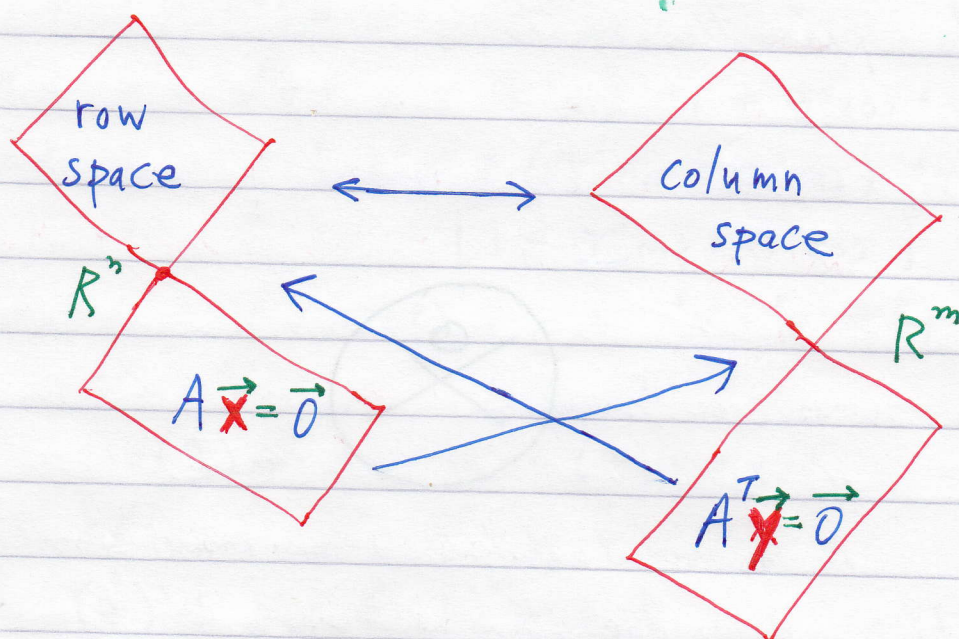 row
space
column
space
Rⁿ
Rᵐ
A x⃗ = 0⃗
Aᵀ y⃗ = 0⃗